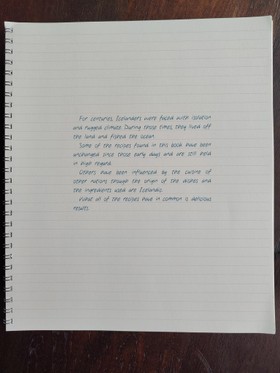 For centuries, Icelanders were faced with isolation
and rugged climate. During those times, they lived off
the land and fished the ocean.
Some of the recipes found in this book have been
unchanged since those early days and are still held
in high regard.
Others have been influenced by the cuisine of
other nations though the origin of the dishes and
the ingredients used are Icelandic.
What all of the recipes have in common is delicious
results.